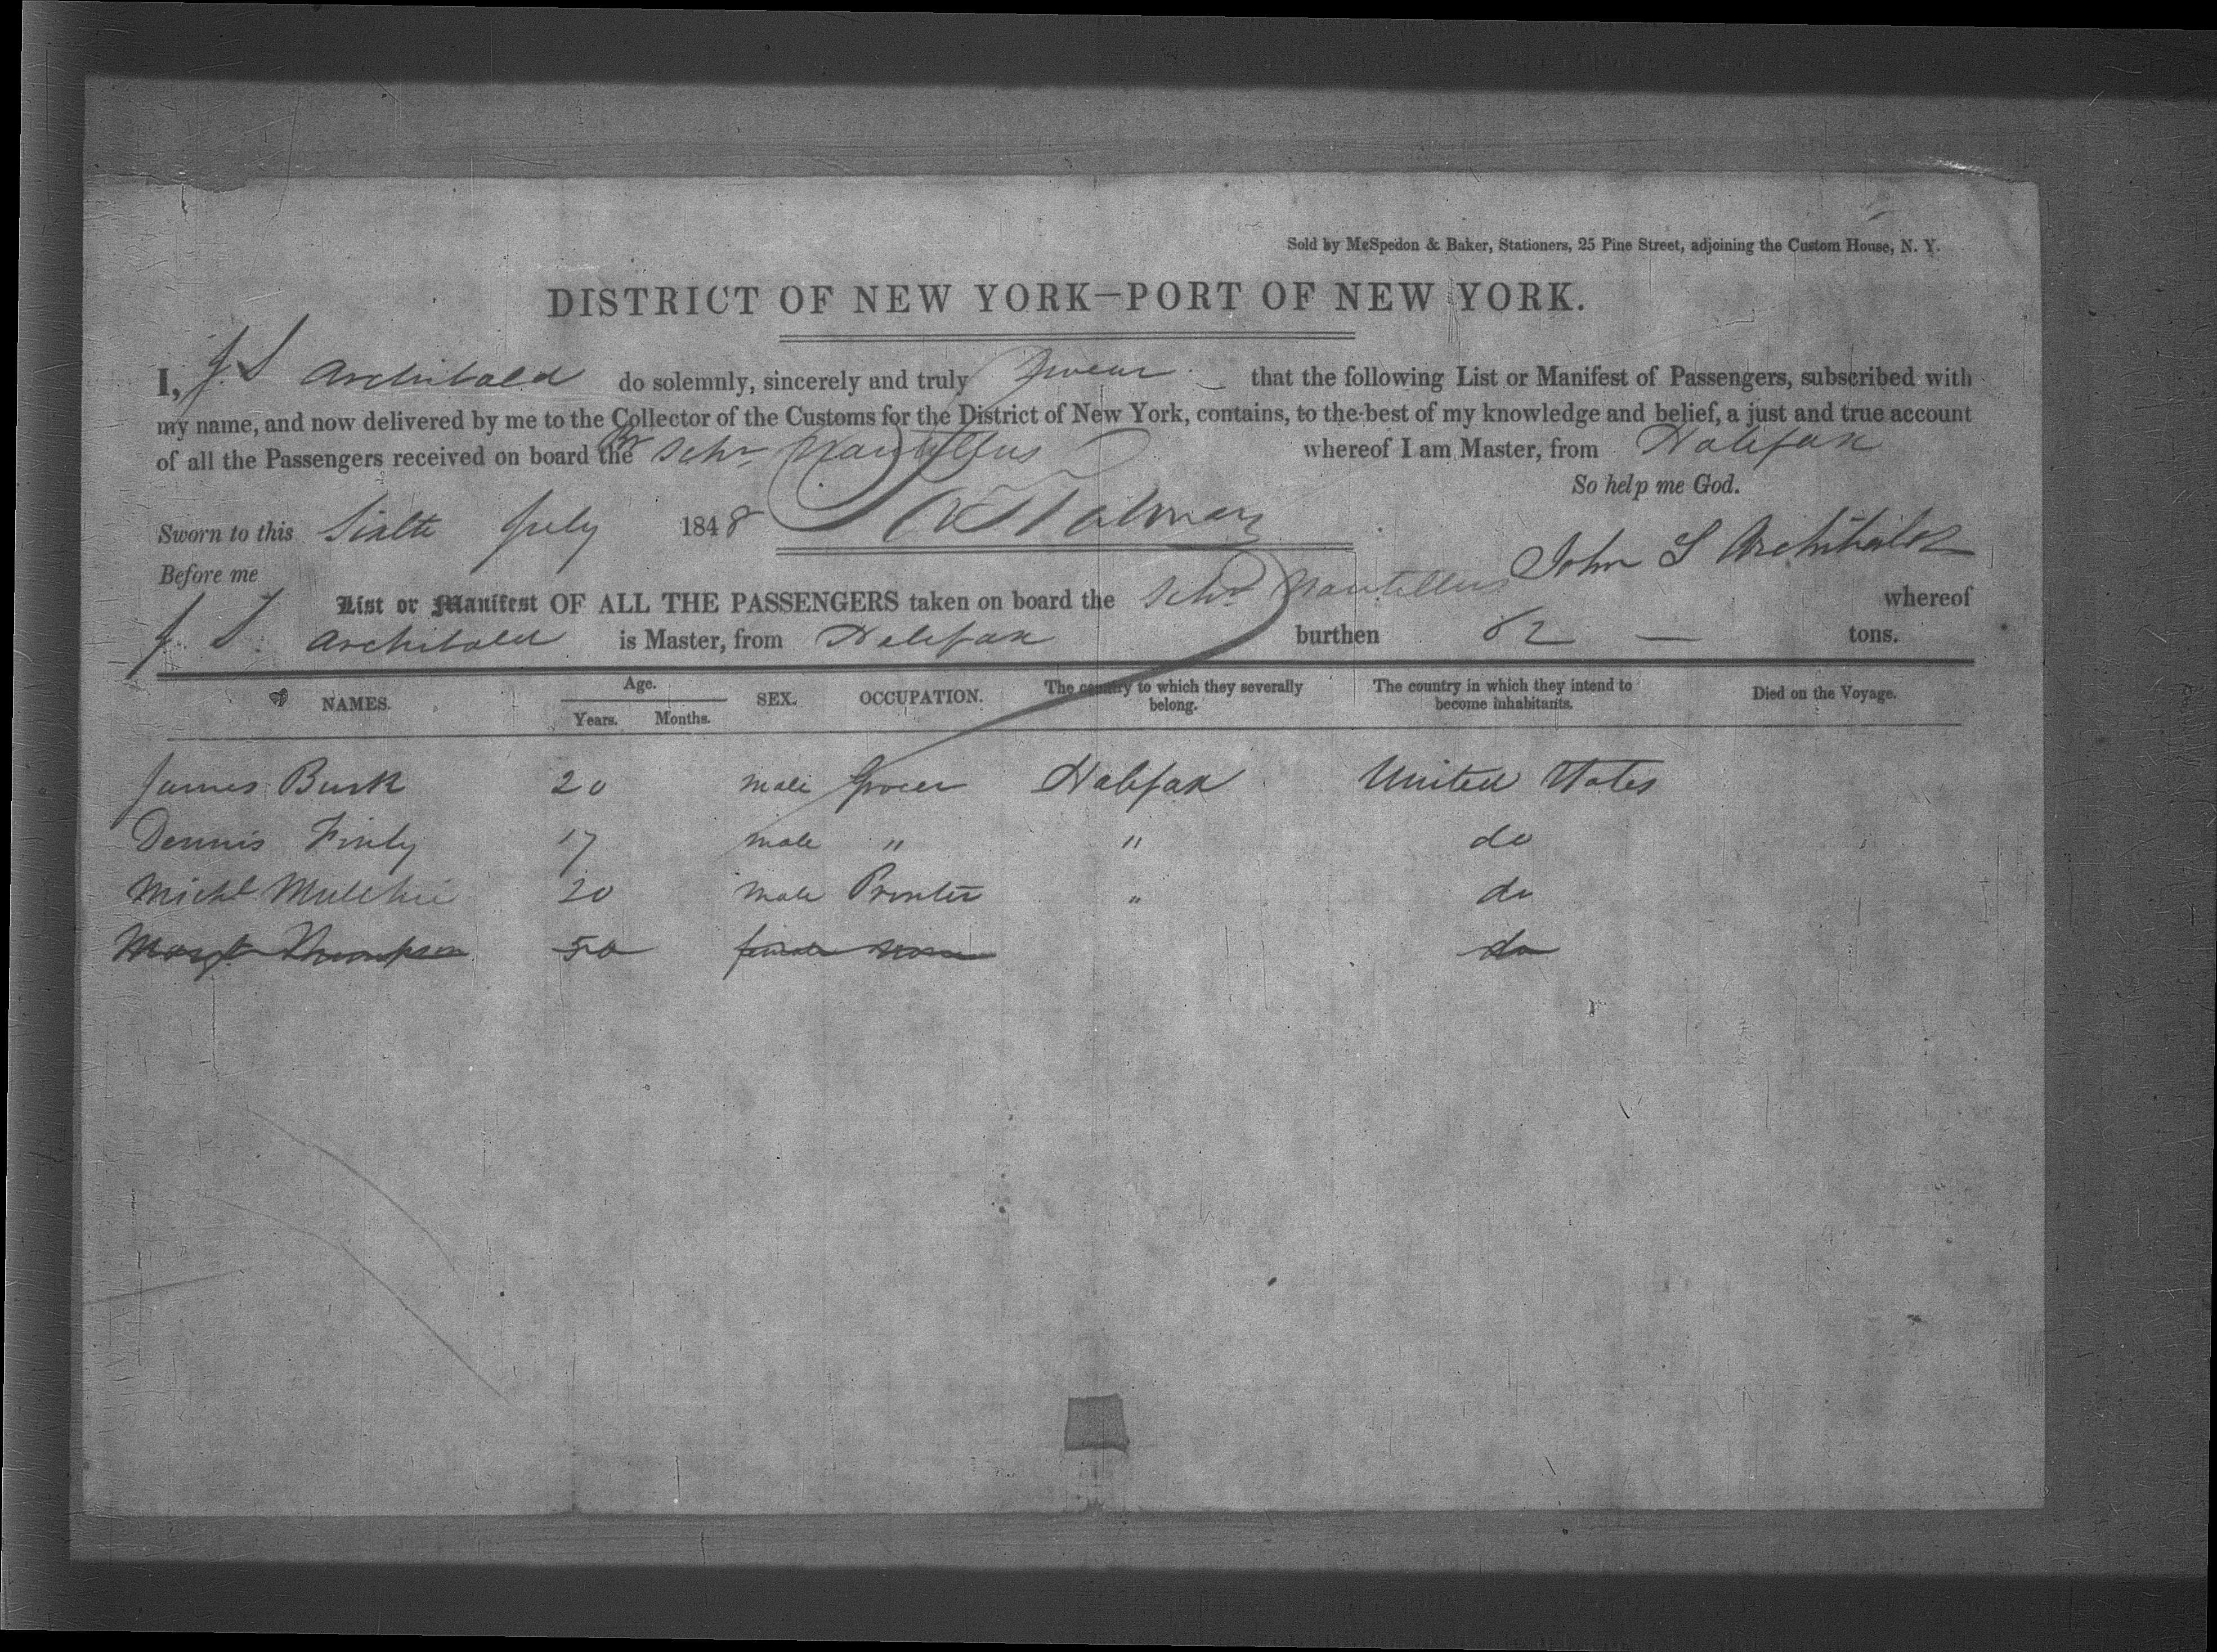 Sold by McSpedon & Baker, Stationers, 25 Pine Street, adjoining the Custom House, N. Y.
DISTRICT OF NEW YORK—PORT OF NEW YORK.
I, J. S Archibald do solemnly, sincerely and truly swear that the following List or Manifest of Passengers, subscribed with
my name, and now delivered by me to the Collector of the Customs for the District of New York, contains, to the best of my knowledge and belief, a just and true account
of all the Passengers received on board the Br Schr Nautillus whereof I am Master, from Halifax
So help me God.
Sworn to this Sixth July 1848
John S Archibald
Before me
List or Manifest OF ALL THE PASSENGERS taken on board the Schr Nautillus whereof
J. S. Archibald is Master, from Halifax burthen 82 — tons.
NAMES. Age. Years. Months. SEX. OCCUPATION. The country to which they severally belong. The country in which they intend to become inhabitants. Died on the Voyage.
James Burk 20 male Grocer Halifax United States
Dennis Finly 17 male " " do
Michl 20 male Printer " do
Margt Thompson 50 female none do